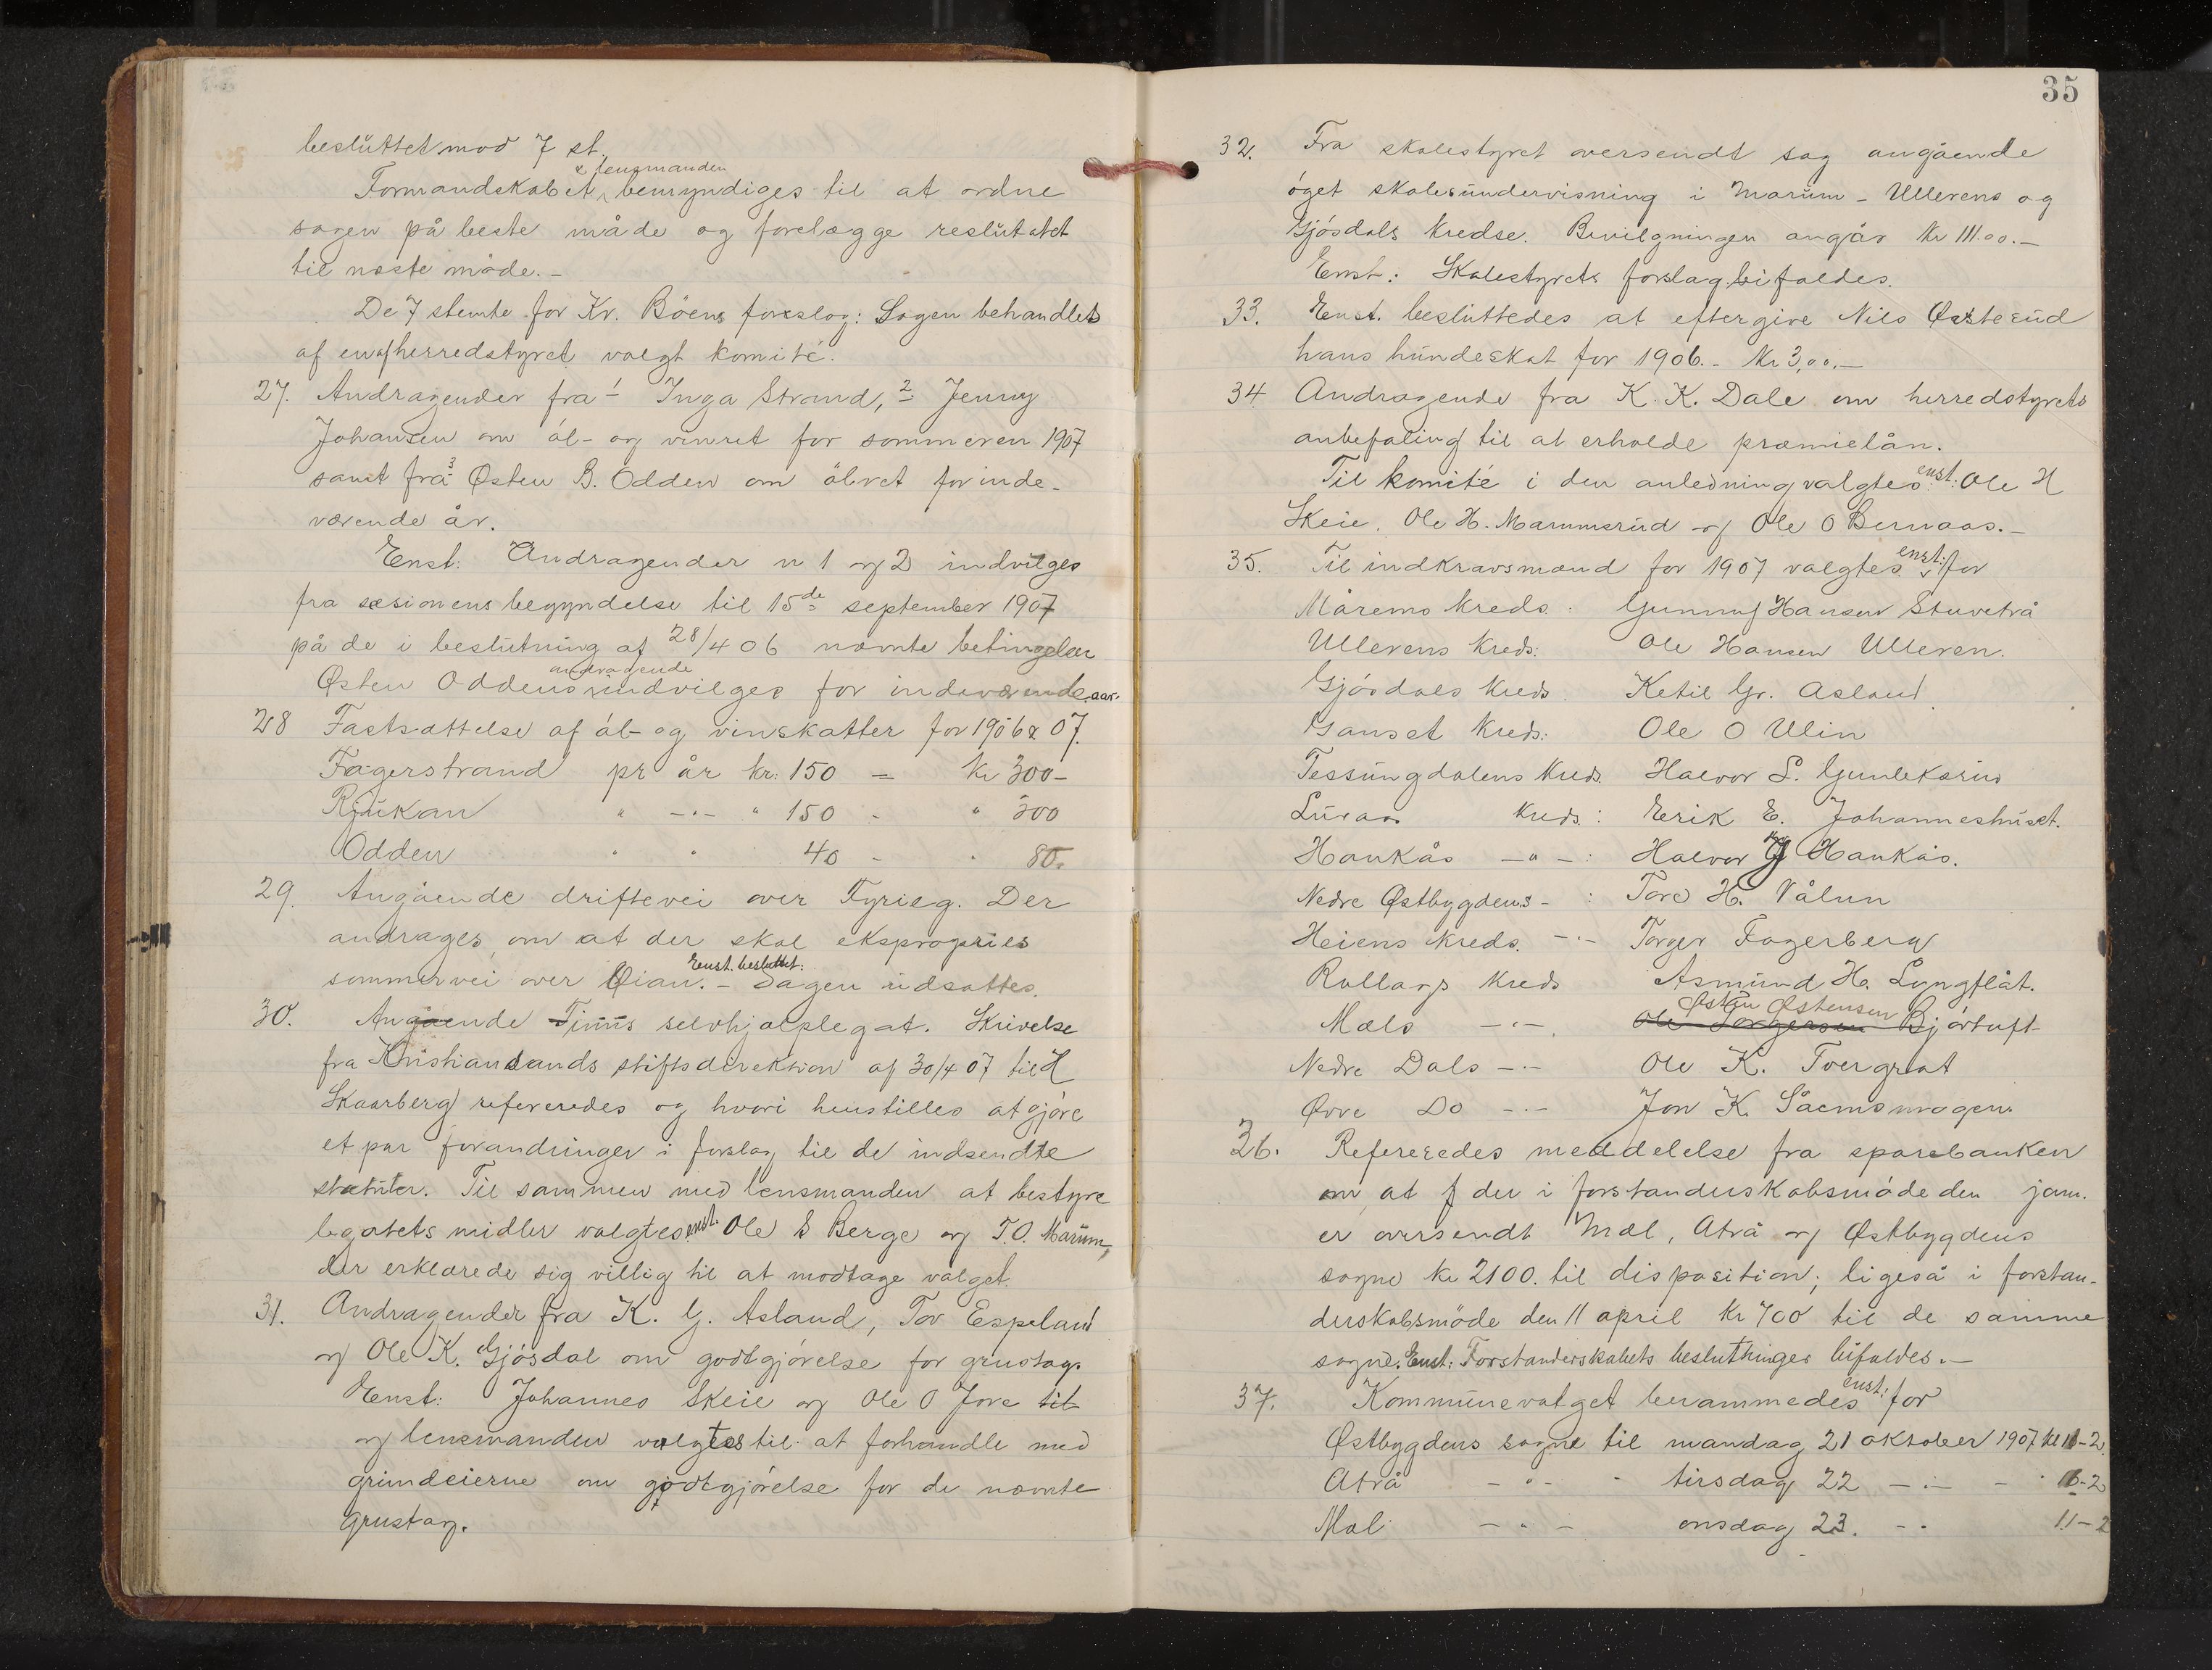 besluttet mod 7 st.
& lensmanden
Formandskabet bemyndiges til at ordne
sagen på beste måde og forelægge reslutatet
til næste møde.-
De 7 stemte for Kr. Bøens foreslag: Sagen behandlets
af en af herredstyret valgt komité.
27. Andragender fra 1 Inga Strand, 2 Jenny
Johansen om øl- og vinret for sommeren 1907
samt fra 3 Østen B. Odden om ølret for inde-
værende år.
Enst: Andragender n 1 og 2 indvilges
fra sæsionens begyndelse til 15de september 1907
på de i beslutning af 28/4 06 nævnte betingelser
andragende
Østen Oddens indvilges for indeværende aar.
28 Fastsættelse af øl- og vinskatter for 1906 & 07.
Fagerstrand pr år kr: 150 = Kr 300-
Rjukan " -"- " 150 - " 300
Odden " " 40 - " 80.
29. Angående driftevei over Tyrieg. Der
andrages om at der skal ekspropries
Enst. besluttet:
sommervei over Øian. - Sagen udsattes.
30. Angående Tinns selvhjælplegat. Skrivelse
fra Kristiansands stiftsdirektion af 30/4 07 til H
Skaarberg refereredes og hvori henstilles at gjøre
et par forandringer i forslag til de indsendte
statuter. Til sammen med lensmanden at bestyre
legatets midler valgtes enst. Ole S Berge og T.O. Marum,
der erklærede sig villig til at modtage valget.
31. Andragender fra K. G. Asland, Tov Espeland
og Ole K. Gjøsdal om godtgjørelse for grustag.
Enst: Johannes Skeie og Ole O Jore til
og lensmanden valgtes til at forhandle med
grundeierne om godtgjørelse for de nævnte
grustag.
35
32. Fra skolestyret oversendt sag angående
øget skolesundervisning i Marum - Ullerens og
Gjøsdals kredse. Bevilgningen angår Kr 111.00.-
Enst: Skolestyrets forslag bifaldes.
33. Enst. besluttedes at eftergive Nils Østerud
hans hundeskat for 1906.- Kr 3,00.-
34 Andragende fra K. K. Dale om herredstyrets
anbefaling til at erholde præmielån.
Til komité i den anledning valgtes enst: Ole H
Skeie, Ole H. Mammsrud og Ole O Bernaas.-
35. Til indkravsmænd for 1907 valgtes enst: for
Mårems kreds: Gunnuf Hansen Stuvetrå
Ullerens Kreds: Ole Hansen Ulleren.
Gjøsdals kreds Ketil Gr. Asland
Gauset Kreds: Ole O Ulin
Tessungdalens Kreds. Halvor S. Gunleksrud
Luraas Kreds: Erik E. Johanneshuset.
Haukås -"-: Halvor Haukås.
Nedre Østbygdens - : Tore H. Vålun
Heiens kreds. -"- Torger Fagerberg
Rollags Kreds Asmund H. Lyngflåt.
Østen Østensen
Mæls -"- Ole Torgersen Bjørtuft
Nedre Dals -"- Ole K. Tvergrot
Øvre Do -"- Jon K. Såemsmogen
36. Refereredes meddelelse fra sparebanken
om at f der i forstanderskabsmøde den jan.
er oversendt Mæl, Atrå og Østbygdens
sogne kr 2100. til disposition; ligeså i forstan-
derskabsmøde den 11 april kr 700 til de samme
sogne. Enst: Forstanderskabets beslutninger bifaldes.-
37. Kommunevalget berammedes enst: for
Østbygdens sogne til mandag 21 oktober 1907 kl 11-2.
Atrå -"- - tirsdag 22 -"- - " 11-2
Mæl -"- onsdag 23. -" 11-2